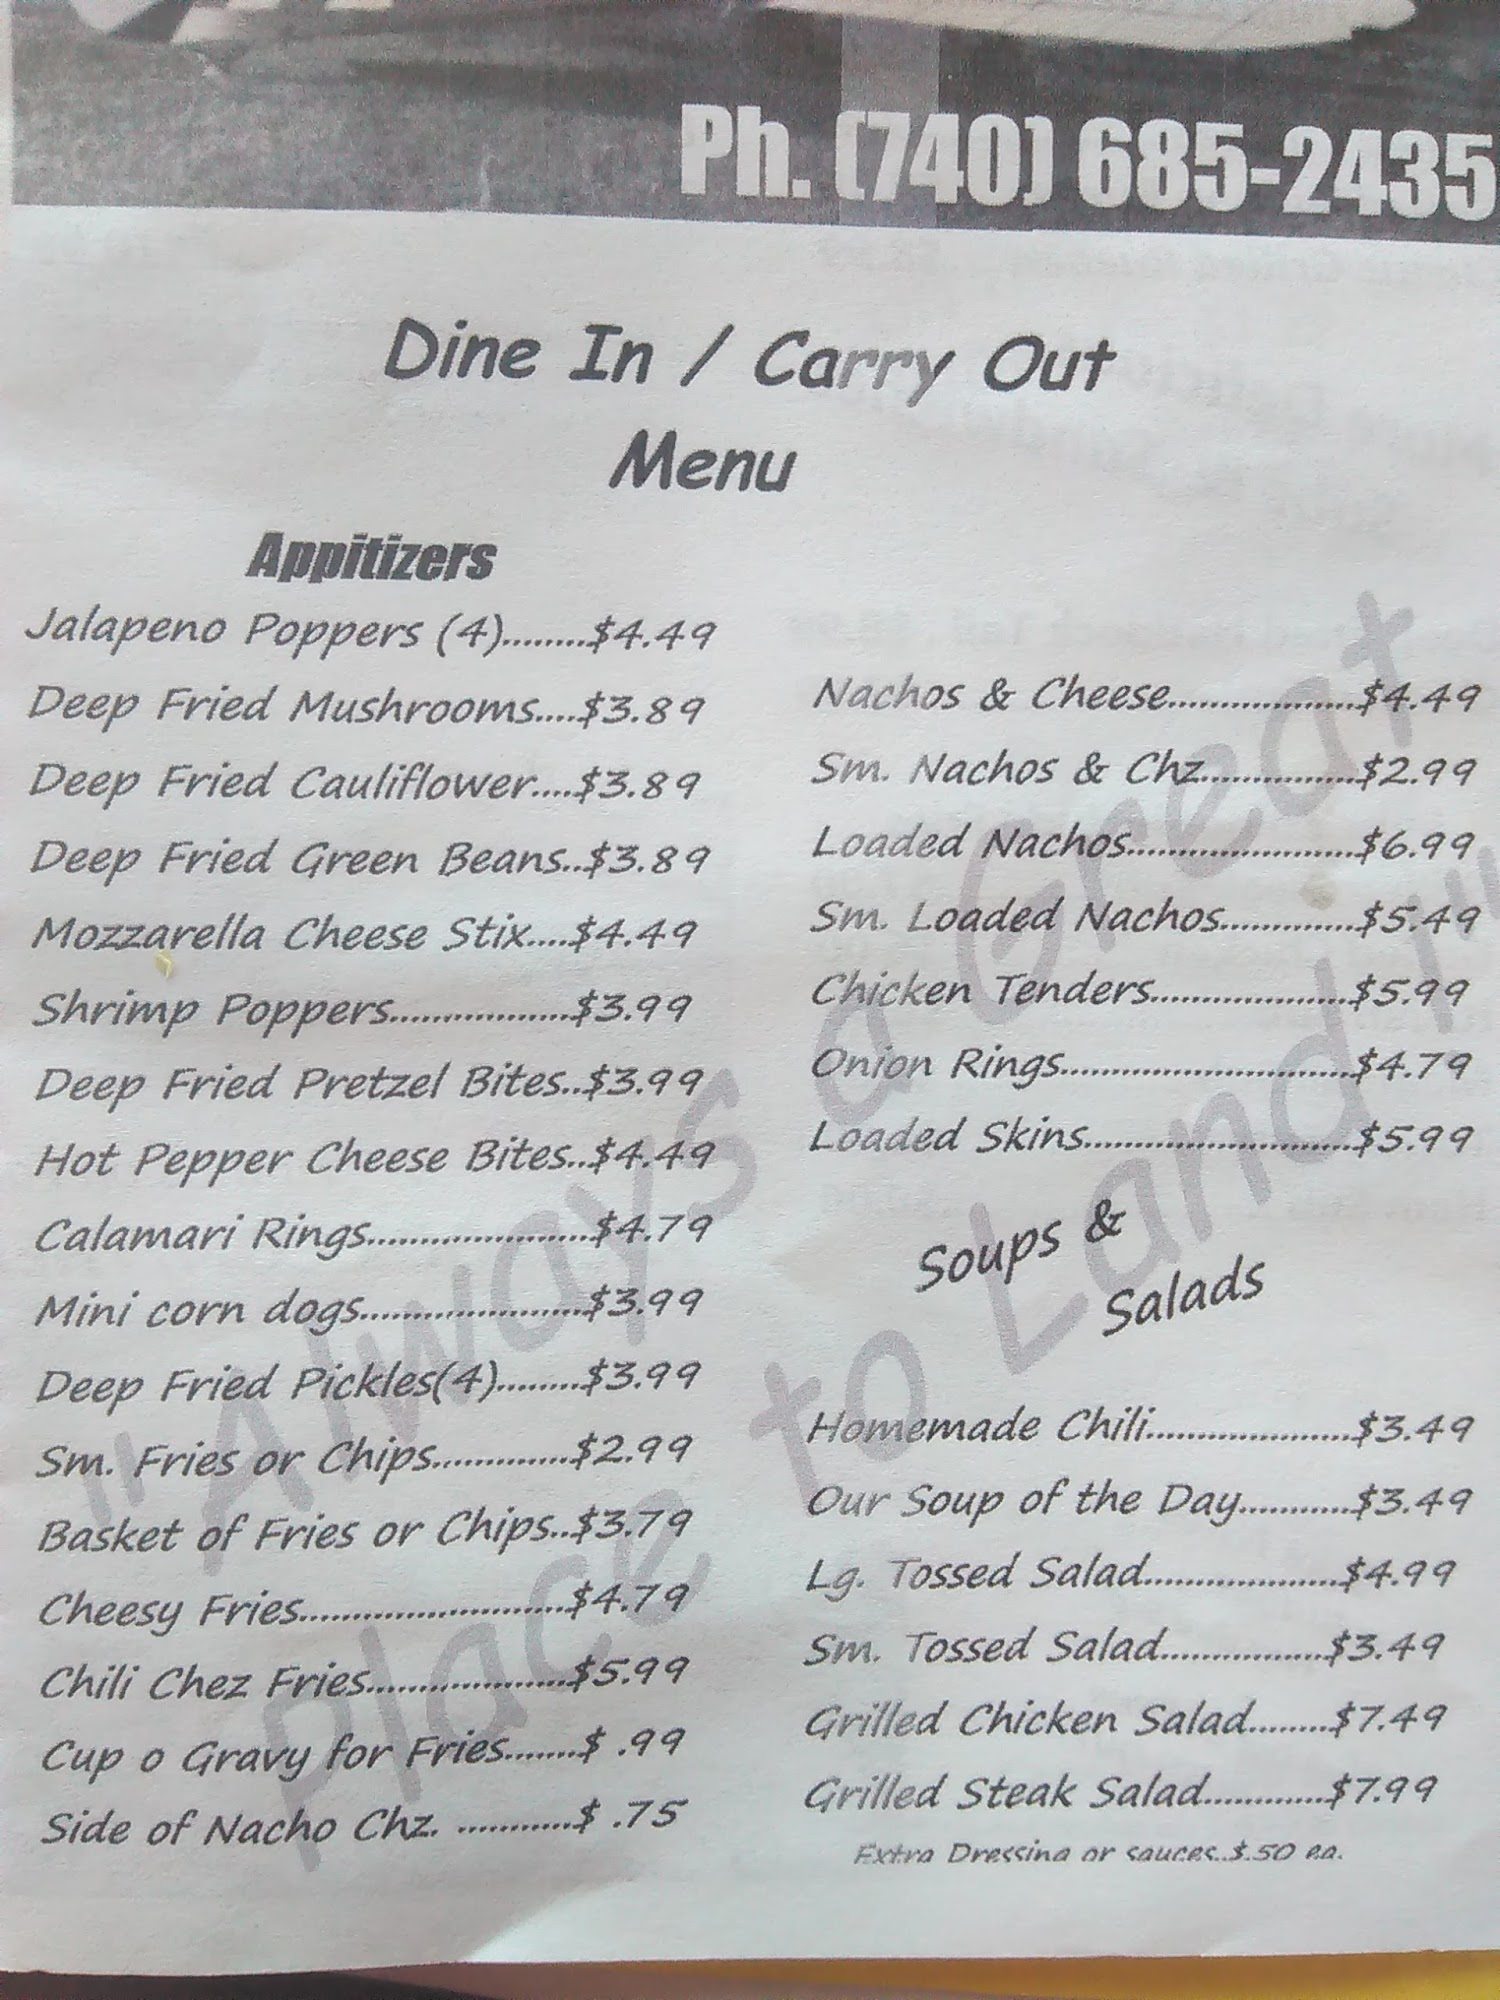 Ph. (740) 685-2435
Dine In / Carry Out
Menu
Appitizers
Jalapeno Poppers (4).........$4.49
Deep Fried Mushrooms....$3.89
Deep Fried Cauliflower....$3.89
Deep Fried Green Beans..$3.89
Mozzarella Cheese Stix....$4.49
Shrimp Poppers..................$3.99
Deep Fried Pretzel Bites..$3.99
Hot Pepper Cheese Bites..$4.49
Calamari Rings......................$4.79
Mini corn dogs.......................$3.99
Deep Fried Pickles(4).........$3.99
Sm. Fries or Chips..............$2.99
Basket of Fries or Chips..$3.79
Cheesy Fries..........................$4.79
Chili Chez Fries....................$5.99
Cup o Gravy for Fries........$ .99
Side of Nacho Chz. ............$ .75
Nachos & Cheese...................$4.49
Sm. Nachos & Chz................$2.99
Loaded Nachos.......................$6.99
Sm. Loaded Nachos..............$5.49
Chicken Tenders....................$5.99
Onion Rings.............................$4.79
Loaded Skins...........................$5.99
Soups &
Salads
Homemade Chili.....................$3.49
Our Soup of the Day...........$3.49
Lg. Tossed Salad....................$4.99
Sm. Tossed Salad.................$3.49
Grilled Chicken Salad.........$7.49
Grilled Steak Salad.............$7.99
Extra Dressing or sauces..$.50 ea.
"Always a Great
Place to Land !"